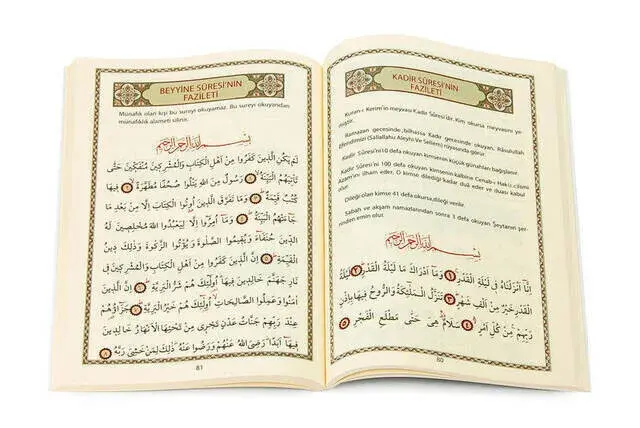 KADİR SÛRESİ'NİN
FAZİLETİ
Kuran-ı Kerim'in meyvası Kadir Sûresi'dir. Kim okursa meyvasını ye-
miştir.
Ramazan gecesinde, bilhassa Kadir gecesinde okuyan, Rasulullah
Efendimizi (Sallallahu Aleyhi Ve Sellem) rüyasında görür.
Kadir Sûresi'ni 10 defa okuyan kimsenin küçük günahları bağışlanır.
Kadir Sûresi'ni 100 defa okuyan kimsenin kalbine Cenab-ı Hakk İsm-i
Azam'ını ilham eder. O kimse dilediği kadar duâ eder ve duası kabul
olur.
Dileği olan kimse 41 defa okursa, dileği verilir.
Sabah ve akşam namazlarından sonra 3 defa okuyan Şeytanın şer-
rinden emin olur.
بسم الله الرحمن الرحيم
اِنَّٓا اَنْزَلْنَاهُ فٖى لَيْلَةِ الْقَدْرِ ﴿١﴾ وَمَٓا اَدْرٰيكَ مَا لَيْلَةُ الْقَدْرِ ﴿٢﴾ لَيْلَةُ
الْقَدْرِ خَيْرٌ مِنْ اَلْفِ شَهْرٍ ﴿٣﴾ تَنَزَّلُ الْمَلٰٓئِكَةُ وَالرُّوحُ فٖيهَا بِاِذْنِ
رَبِّهِمْ مِنْ كُلِّ اَمْرٍ ﴿٤﴾ سَلَامٌ هِىَ حَتّٰى مَطْلَعِ الْفَجْرِ ﴿٥﴾
80
BEYYİNE SÛRESİ'NİN
FAZİLETİ
Münafık olan kişi bu sureyi okuyamaz. Bu sureyi okuyandan
münafıklık alameti silinir.
بسم الله الرحمن الرحيم
لَمْ يَكُنِ الَّذٖينَ كَفَرُوا مِنْ اَهْلِ الْكِتَابِ وَالْمُشْرِكٖينَ مُنْفَكّٖينَ حَتّٰى
تَأْتِيَهُمُ الْبَيِّنَةُ ﴿١﴾ رَسُولٌ مِنَ اللّٰهِ يَتْلُوا صُحُفًا مُطَهَّرَةً ﴿٢﴾ فٖيهَا
كُتُبٌ قَيِّمَةٌ ﴿٣﴾ وَمَا تَفَرَّقَ الَّذٖينَ اُوتُوا الْكِتَابَ اِلَّا مِنْ بَعْدِ مَا
جَٓاءَتْهُمُ الْبَيِّنَةُ ﴿٤﴾ وَمَٓا اُمِرُٓوا اِلَّا لِيَعْبُدُوا اللّٰهَ مُخْلِصٖينَ لَهُ
الدّٖينَ حُنَفَٓاءَ وَيُقٖيمُوا الصَّلٰوةَ وَيُؤْتُوا الزَّكٰوةَ وَذٰلِكَ دٖينُ
الْقَيِّمَةِ ﴿٥﴾ اِنَّ الَّذٖينَ كَفَرُوا مِنْ اَهْلِ الْكِتَابِ وَالْمُشْرِكٖينَ فٖى
نَارِ جَهَنَّمَ خَالِدٖينَ فٖيهَا اُولٰٓئِكَ هُمْ شَرُّ الْبَرِيَّةِ ﴿٦﴾ اِنَّ الَّذٖينَ
اٰمَنُوا وَعَمِلُوا الصَّالِحَاتِ اُولٰٓئِكَ هُمْ خَيْرُ الْبَرِيَّةِ ﴿٧﴾ جَزَٓاؤُهُمْ
عِنْدَ رَبِّهِمْ جَنَّاتُ عَدْنٍ تَجْرٖى مِنْ تَحْتِهَا الْاَنْهَارُ خَالِدٖينَ
فٖيهَٓا اَبَدًا رَضِىَ اللّٰهُ عَنْهُمْ وَرَضُوا عَنْهُ ذٰلِكَ لِمَنْ خَشِىَ رَبَّهُ ﴿٨﴾
81